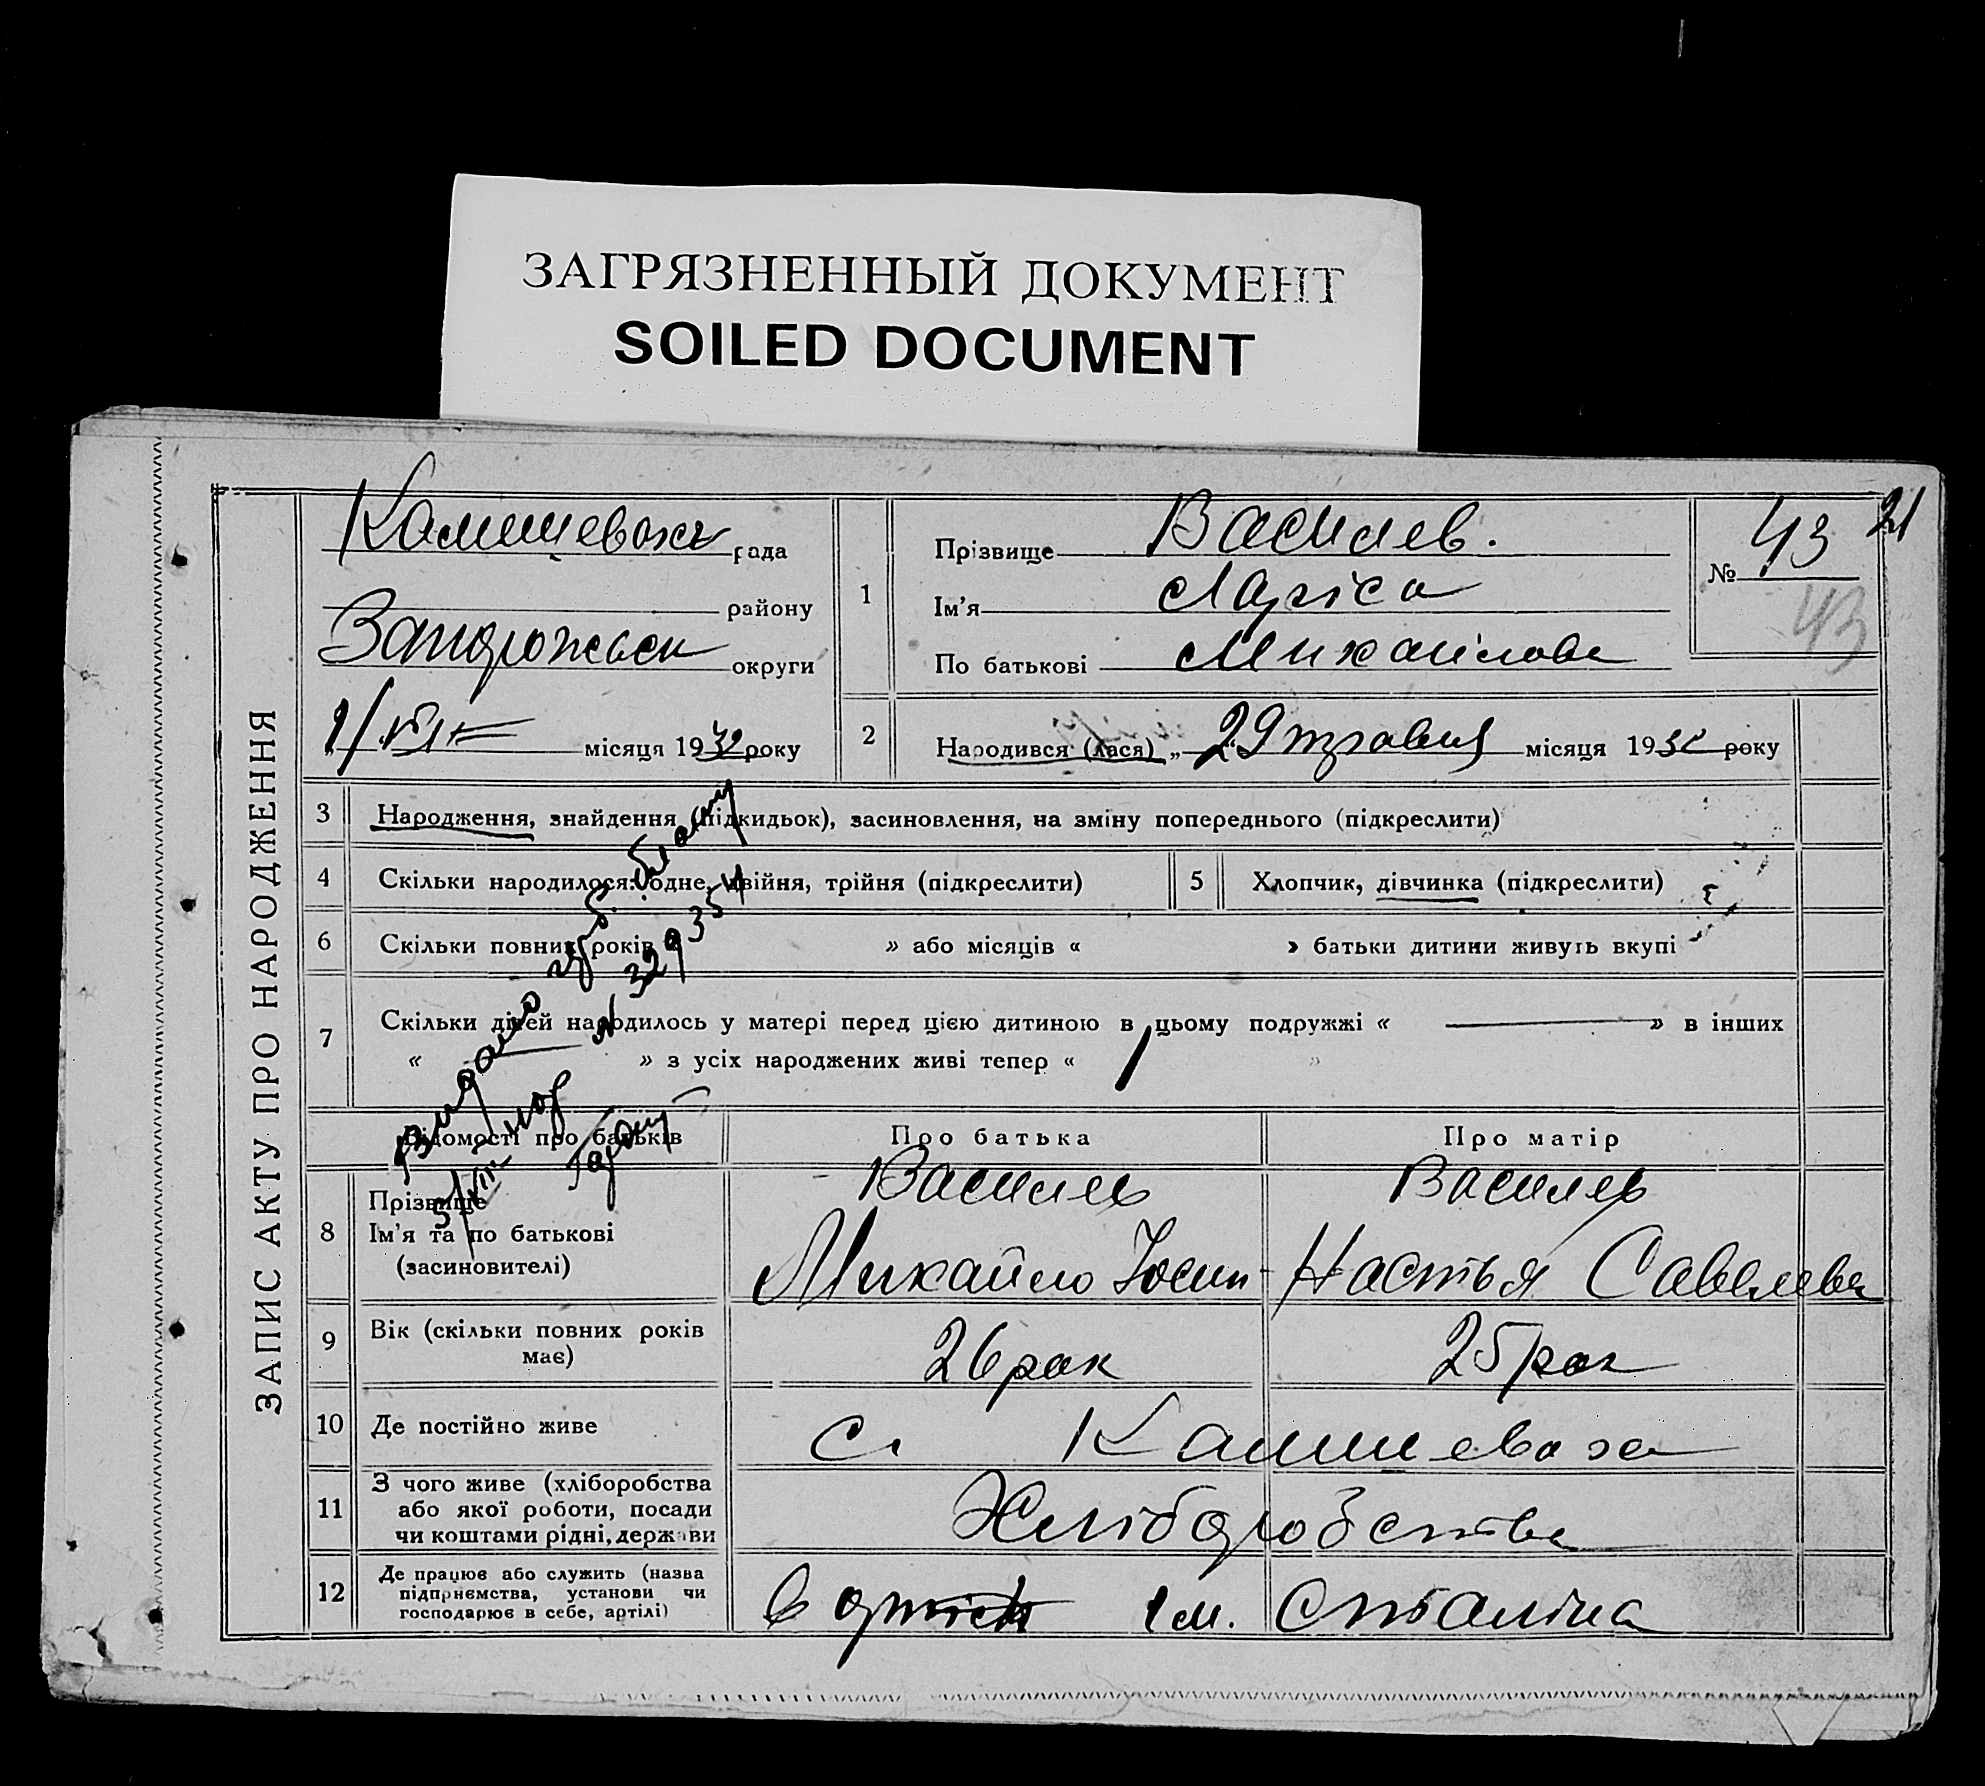 ЗАГРЯЗНЕННЫЙ ДОКУМЕНТ
SOILED DOCUMENT
ЗАПИС АКТУ ПРО НАРОДЖЕННЯ
рада
району
Запорожськ округи
місяця 1932 року
1
Прізвище Василев.
Ім'я Лариса
По батькові Михайлова
№ 43
21
43
2
Народився (лася) „29 травня місяця 193 року
3 Народження, знайдення (підкидьок), засиновлення, на зміну попереднього (підкреслити)
4 Скільки народилося: одне, двійня, трійня (підкреслити)
5 Хлопчик, дівчинка (підкреслити)
6 Скільки повних років » або місяців « » батьки дитини живуть вкупі
7 Скільки дітей народилось у матері перед цією дитиною в цьому подружжі « — » в інших
« — » з усіх народжених живі тепер « 1 »
Видано
N 329354
Відомості про батьків
Про батька
Про матір
8 Прізвище
Ім'я та по батькові
(засиновителі)
Василев
Михайло Юсип-
Василев
Настья Савелева
9 Вік (скільки повних років
має)
26 рок
25 рок
10 Де постійно живе
с. Камишеваха
11 З чого живе (хліборобства
або якої роботи, посади
чи коштами рідні, держави
Хліборобства
12 Де працює або служить (назва
підприємства, установи чи
господарює в себе, артілі)
в артілі ім. Сталіна